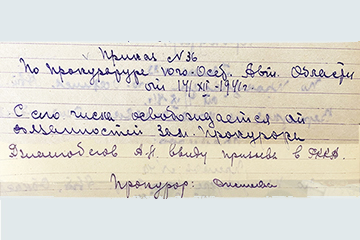 Приказ №36
По прокуратуре Юго-Осет. Авт. Области
от 14/XII-1941г.
С сего числа освобождается от
должностей Зам. Прокурора
А.Н. ввиду призыва в РККА.
Прокурор: